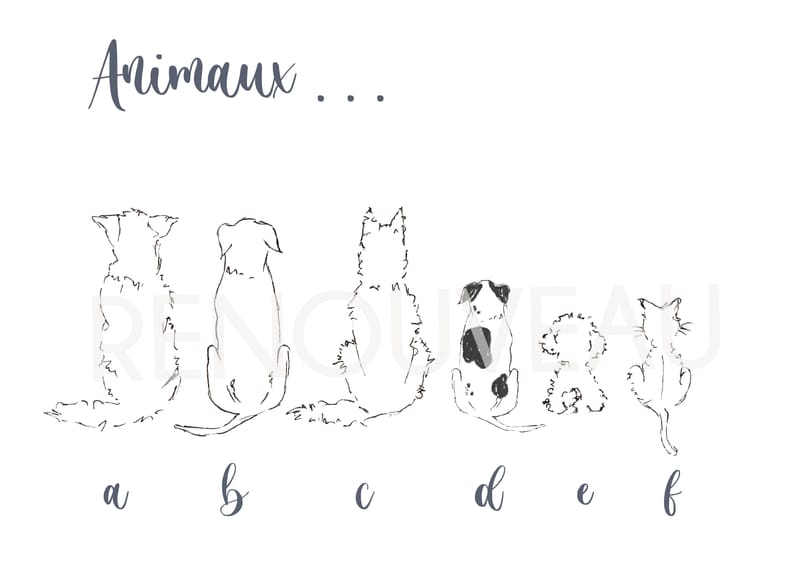 Animaux ...
RENOUVEAU
a b c d e f